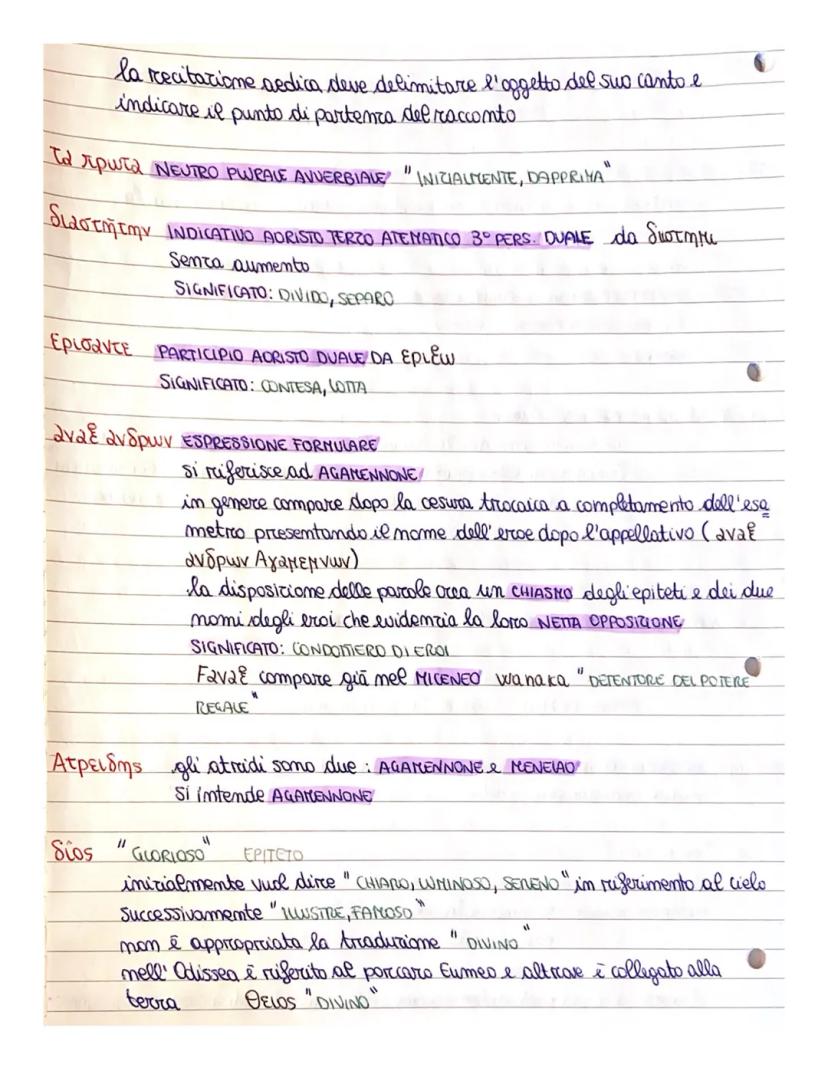 la recitazione aedica deve delimitare l'oggetto del suo canto e
indicare il punto di partenza del racconto
τα πρωτα NEUTRO PLURALE AVVERBIALE "INIZIALMENTE, DAPPRIMA"
διαστῆτην INDICATIVO AORISTO TERZO ATEMATICO 3° PERS. DUALE da διιστημι
Senza aumento
SIGNIFICATO: DIVIDO, SEPARO
Ερισαντε PARTICIPIO AORISTO DUALE DA εριζω
SIGNIFICATO: CONTESA, LOTTA
αναξ ανδρων ESPRESSIONE FORMULARE
si riferisce ad AGAMENNONE
in genere compare dopo la cesura trocaica a completamento dell'esa
metro presentando il nome dell'eroe dopo l'appellativo (αναξ
ανδρων Αγαμεμνων)
la disposizione delle parole crea un CHIASMO degli epiteti e dei due
nomi degli eroi che evidenzia la loro NETTA OPPOSIZIONE
SIGNIFICATO: CONDOTTIERO DI EROI
Fαναξ compare già nel MICENEO wanaka "DETENTORE DEL POTERE
REGALE"
Ατρειδης gli atridi sono due : AGAMENNONE e MENELAO
Si intende AGAMENNONE
δῖος "GLORIOSO" EPITETO
inizialmente vuol dire "CHIARO, LUMINOSO, SERENO" in riferimento al cielo
successivamente "ILLUSTRE, FAMOSO"
non è appropriata la traduzione "DIVINO"
nell'Odissea è riferito al porcaro Eumeo e altrove è collegato alla
terra θειος "DIVINO"